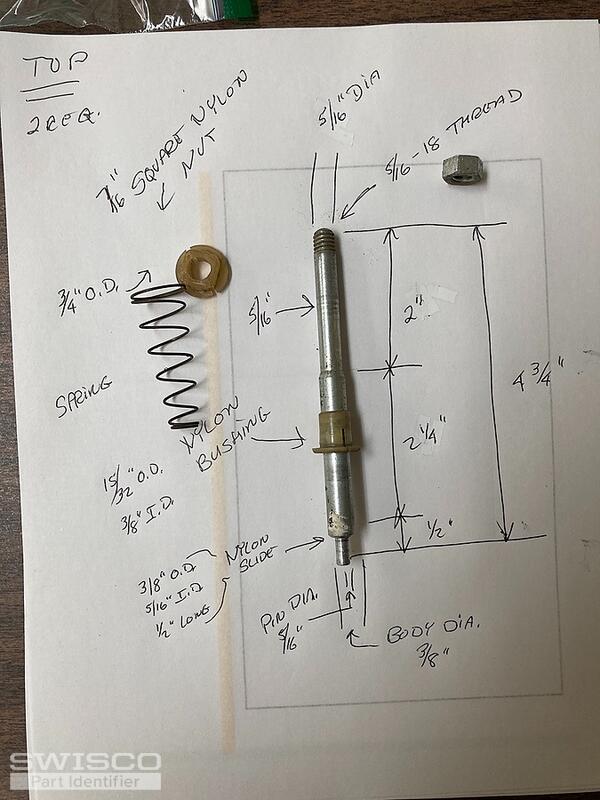 TOP
2 REQ.
7/16" SQUARE NYLON
NUT
5/16" DIA
5/16-18 THREAD
3/4" O.D.
5/16"
2"
4 3/4"
SPRING
NYLON
BUSHING
2 1/4"
15/32" O.D.
3/8" I.D.
1/2"
NYLON
SLIDE
3/8" O.D.
5/16" I.D.
1/2" LONG
PIN DIA.
5/16"
BODY DIA.
3/8"
SWISCO
Part Identifier